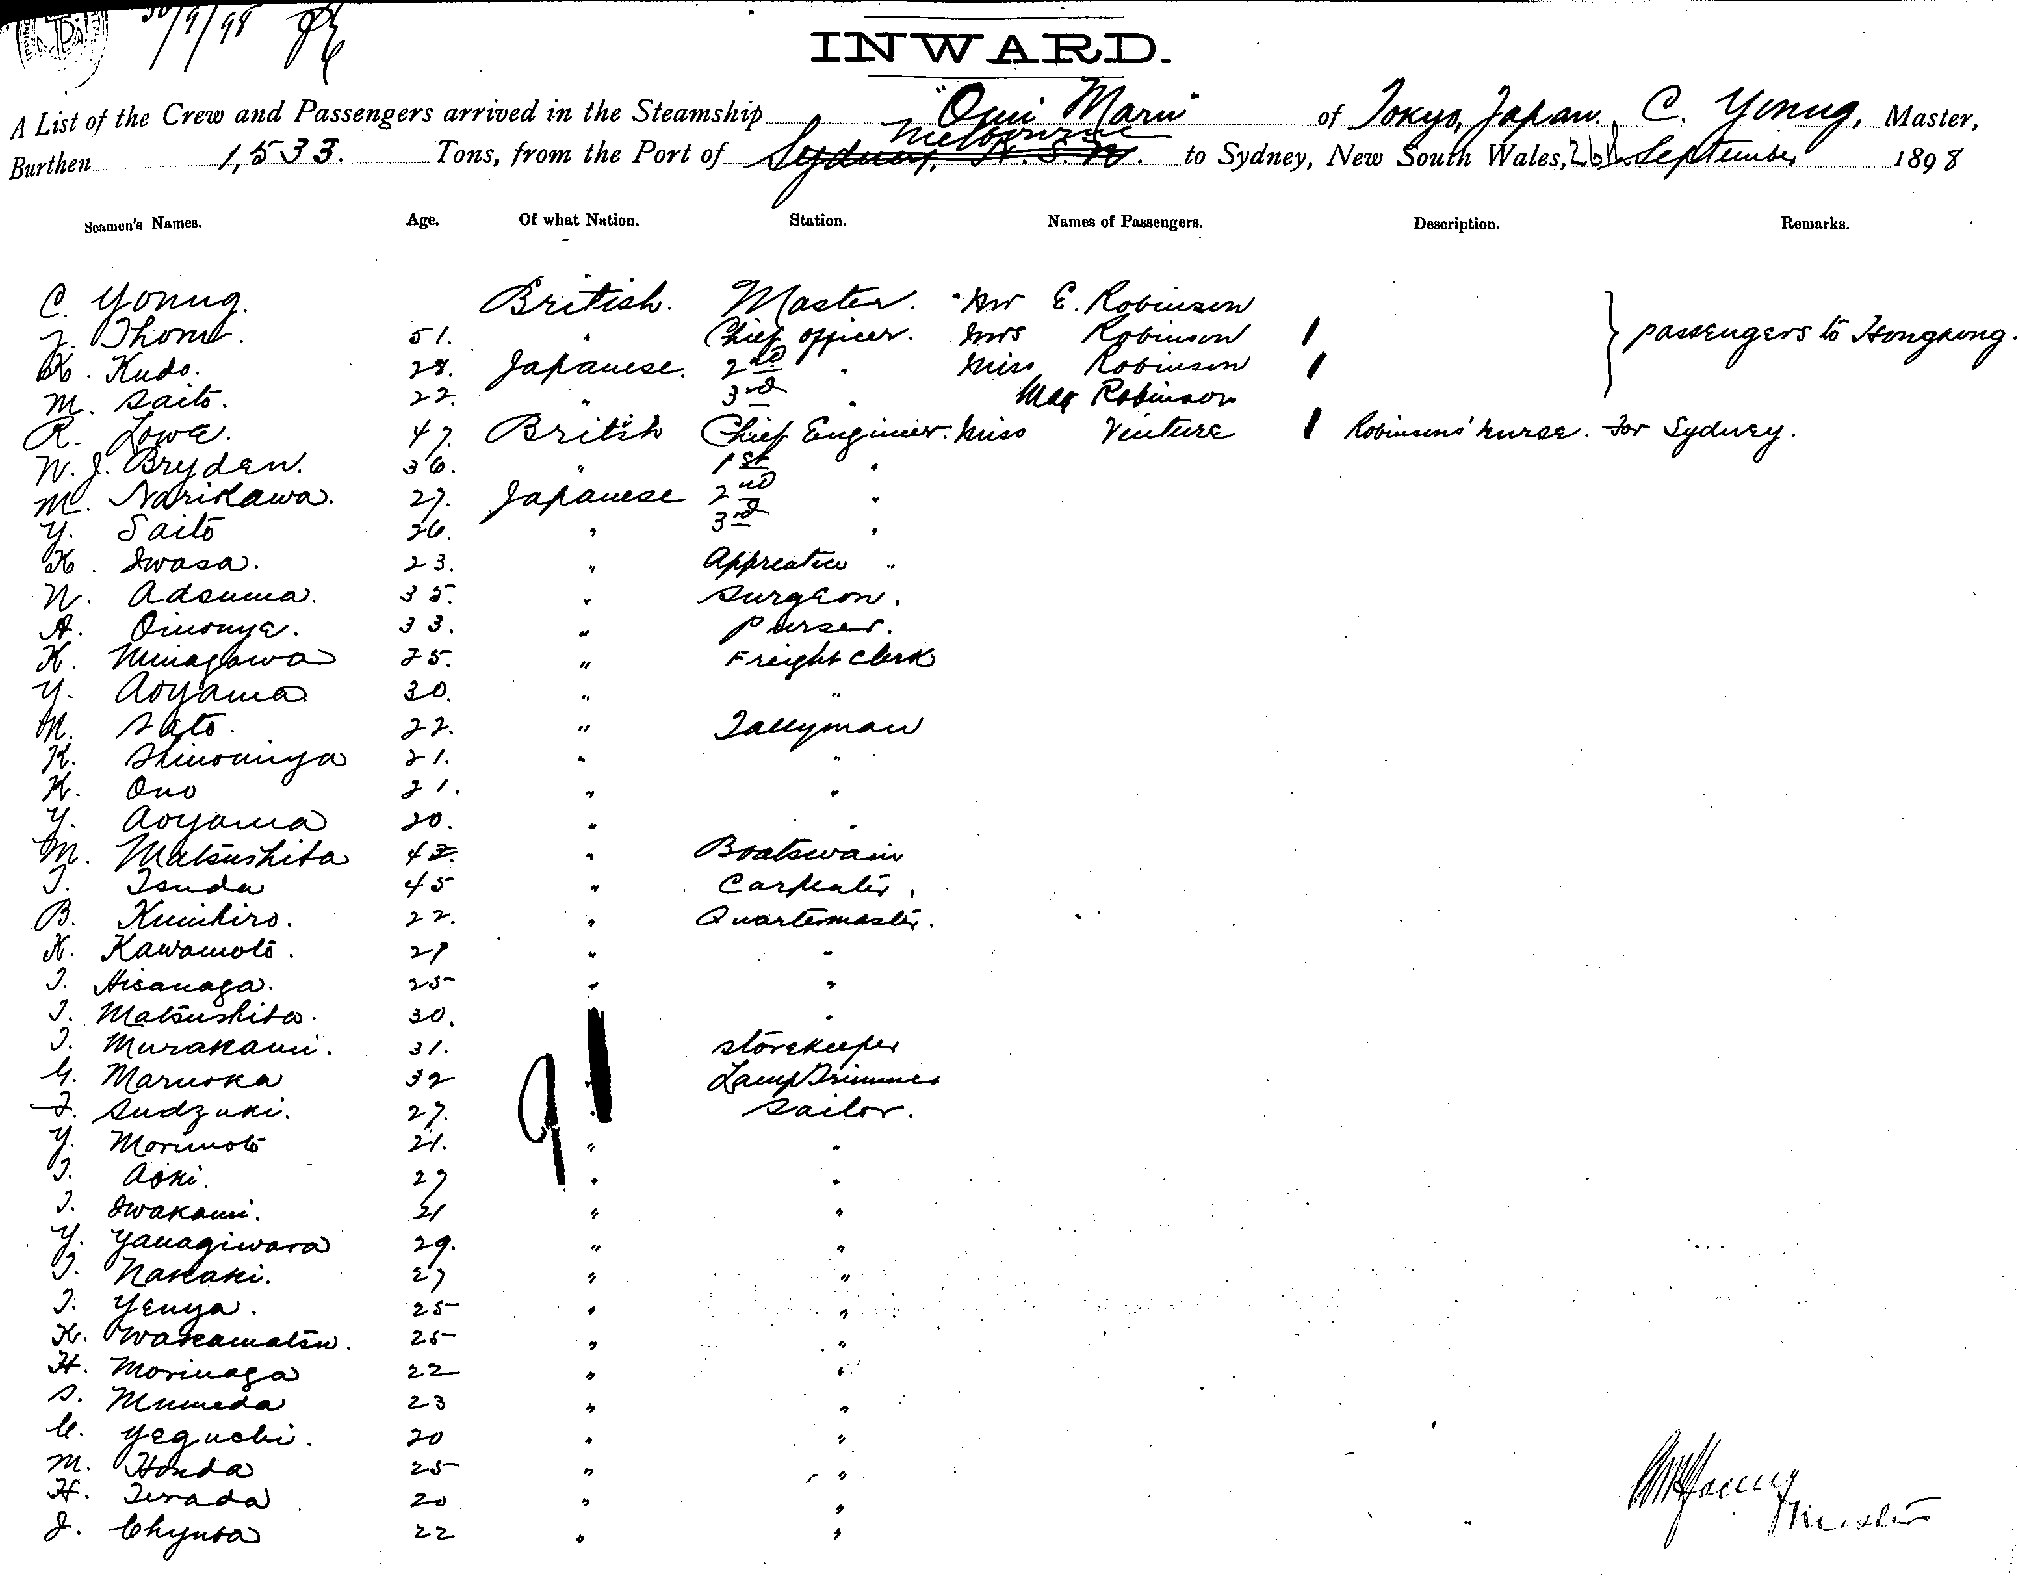 30/9/98
INWARD.
A List of the Crew and Passengers arrived in the Steamship "Omi Maru" of Tokyo, Japan. C. Young, Master,
Burthen 1,533. Tons, from the Port of Sydney, N. S. W. Melbourne to Sydney, New South Wales, 26th September 1898
Seamen's Names. Age. Of what Nation. Station. Names of Passengers. Description. Remarks.
C. Young. British. Master. Mr E. Robinson
Thom. 51. " Chief officer. Mrs Robinson 1 passengers to Hongkong.
K. Kudo. 28. Japanese. 2nd " Miss Robinson 1
M. Saito. 22. " 3rd " Mas Robinson
R. Lowe. 47. British Chief Engineer. Miss Venture 1 Robinsons' nurse. For Sydney.
W. J. Bryden. 36. " 1st "
M. Narikawa. 27. Japanese 2nd "
Y. Saito 26. " 3rd "
K. Iwasa. 23. " Apprentice "
N. Adsuma. 35. " Surgeon.
A. Oinouye. 33. " Purser.
K. Minagawa 25. " Freight Clerk
Y. Aoyama 30. " "
M. Sato. 22. " Tallyman
K. Shinomiya 21. " "
K. Ono 21. " "
Y. Aoyama 20. " "
M. Matsushita 43. " Boatswain
T. Tsuda 45 " Carpenter.
B. Kunihiro. 22. " Quartermaster.
K. Kawamoto. 29 " "
T. Hisanaga. 25 " "
T. Matsushita. 30. "
T. Murakami. 31. Storekeeper
G. Maruoka 32 " Lamp Trimmer
T. Sudzuki. 27. " Sailor.
Y. Morimoto 21. " "
T. Aoki. 27 " "
T. Iwakami. 21 " "
Y. Yanagiwara 29. " "
T. Nakaki. 27 " "
T. Yenya. 25 " "
K. Wakamatsu. 25 " "
H. Morinaga 22 " "
S. Mumeda 23 " "
U. Yeguchi. 20 " "
M. Honda 25 " "
H. Terada 20 " "
J. Chyuta 22 " "
Young
Master